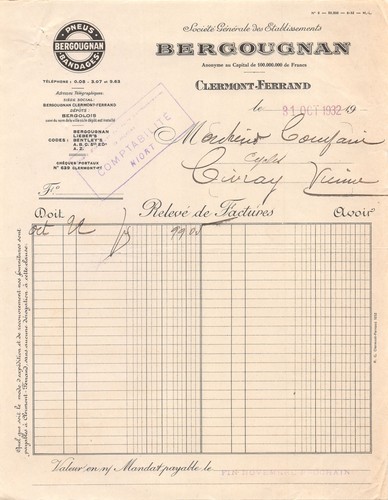 N° 3 — 50.000 — 6-32 — N.L.
PNEUS
BERGOUGNAN
BANDAGES
Société Générale des Etablissements
BERGOUGNAN
Anonyme au Capital de 100.000.000 de Francs
CLERMONT-FERRAND
TÉLÉPHONE : 6.06 - 9.07 et 9.63
Adresses Télégraphiques:
SIÈGE SOCIAL:
BERGOUGNAN CLERMONT-FERRAND
DÉPÔTS
BERGOLOIS
suivi du nom de la ville où le dépôt est installé
CODES :
BERGOUGNAN
LIEBER'S
BENTLEY'S
A.B.C. 5th Ed
A.Z.
CHÈQUES POSTAUX
N° 639 CLERMONT-Fd
COMPTABILITÉ
NIORT
le 31 OCT 1932 19
Cycles
Civray Vienne
Fio
Doit
Relevé de Factures
Avoir
Oct 22 99
Quel que soit le mode d'expédition et de recouvrement nos fournitures sont
payables à Clermont-Ferrand, sans aucune dérogation à cette clause.
Valeur en n/ Mandat payable le
FIN NOVEMBRE PROCHAIN